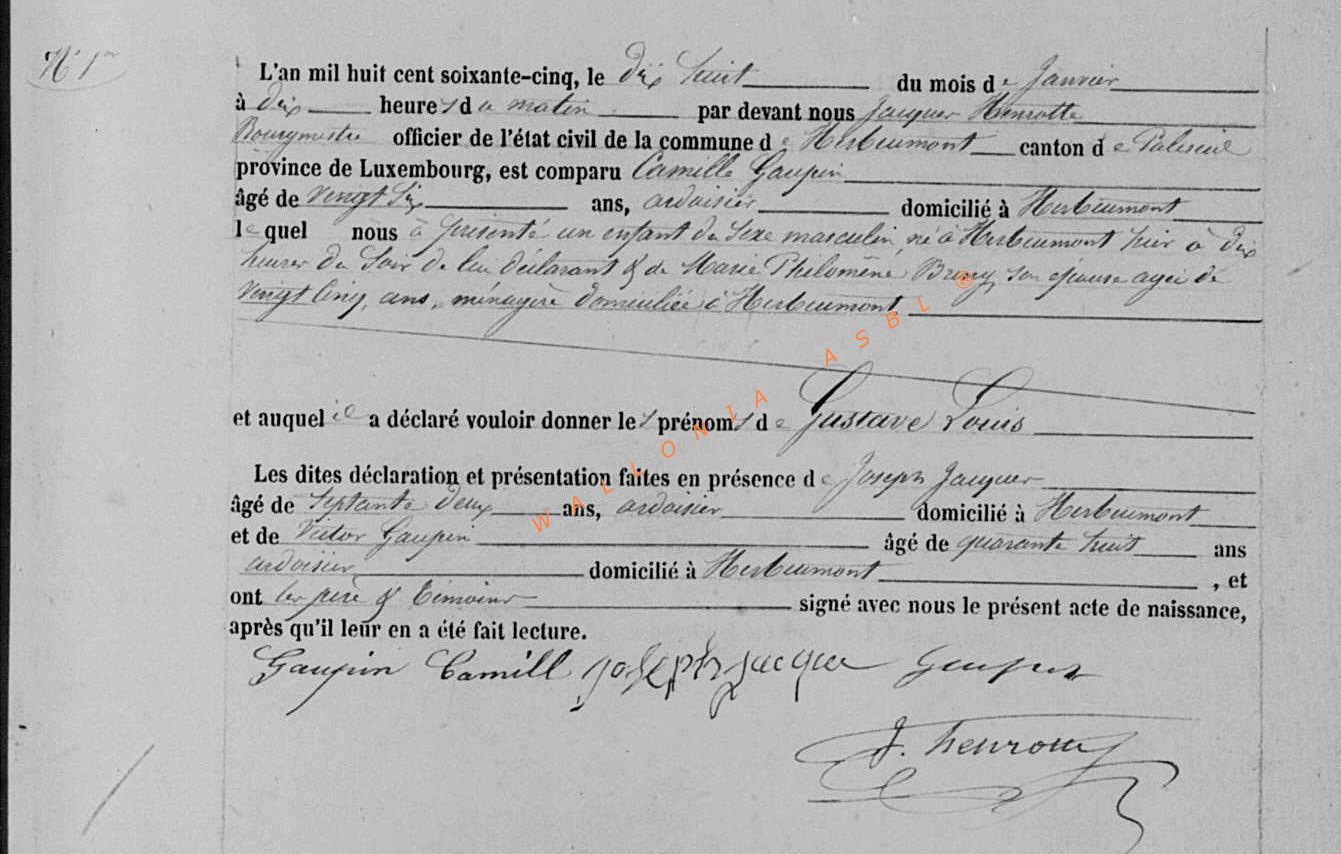 N° 1er
L'an mil huit cent soixante-cinq, le dix huit du mois de Janvier
à dix heures du matin par devant nous Jacques Henrotte
Bourgmestre officier de l'état civil de la commune de Herbeumont canton de Paliseul
province de Luxembourg, est comparu Camille Gaupin
âgé de vingt six ans, ardoisier domicilié à Herbeumont
lequel nous à présenté un enfant du sexe masculin né à Herbeumont hier à dix
heures du soir de lui déclarant & de Marie Philomène son épouse agée de
vingt cinq ans, ménagère domiciliée à Herbeumont
et auquel il a déclaré vouloir donner les prénoms de Gustave Louis
Les dites déclaration et présentation faites en présence de Joseph Jacques
âgé de septante deux ans, ardoisier domicilié à Herbeumont
et de Victor Gaupin âgé de quarante huit ans
ardoisier domicilié à Herbeumont , et
ont les père & témoins signé avec nous le présent acte de naissance,
après qu'il leur en a été fait lecture.
Gaupin Camill Joseph jacque Gaupin
J. henrotte
WALLONIA ASBL ®